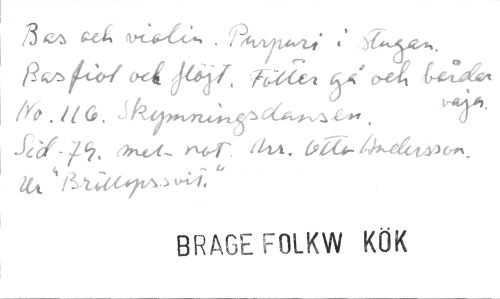 Bas och violin. Purpuri i stugan.
Basfiol och flöjt. Fötter gå och bårdar
vaja.
No. 116. Skymningsdansen.
Sid. 79. mel. not. Arr. Otto Andersson.
Ur "Bröllopssvit."
BRAGE FOLKW KÖK